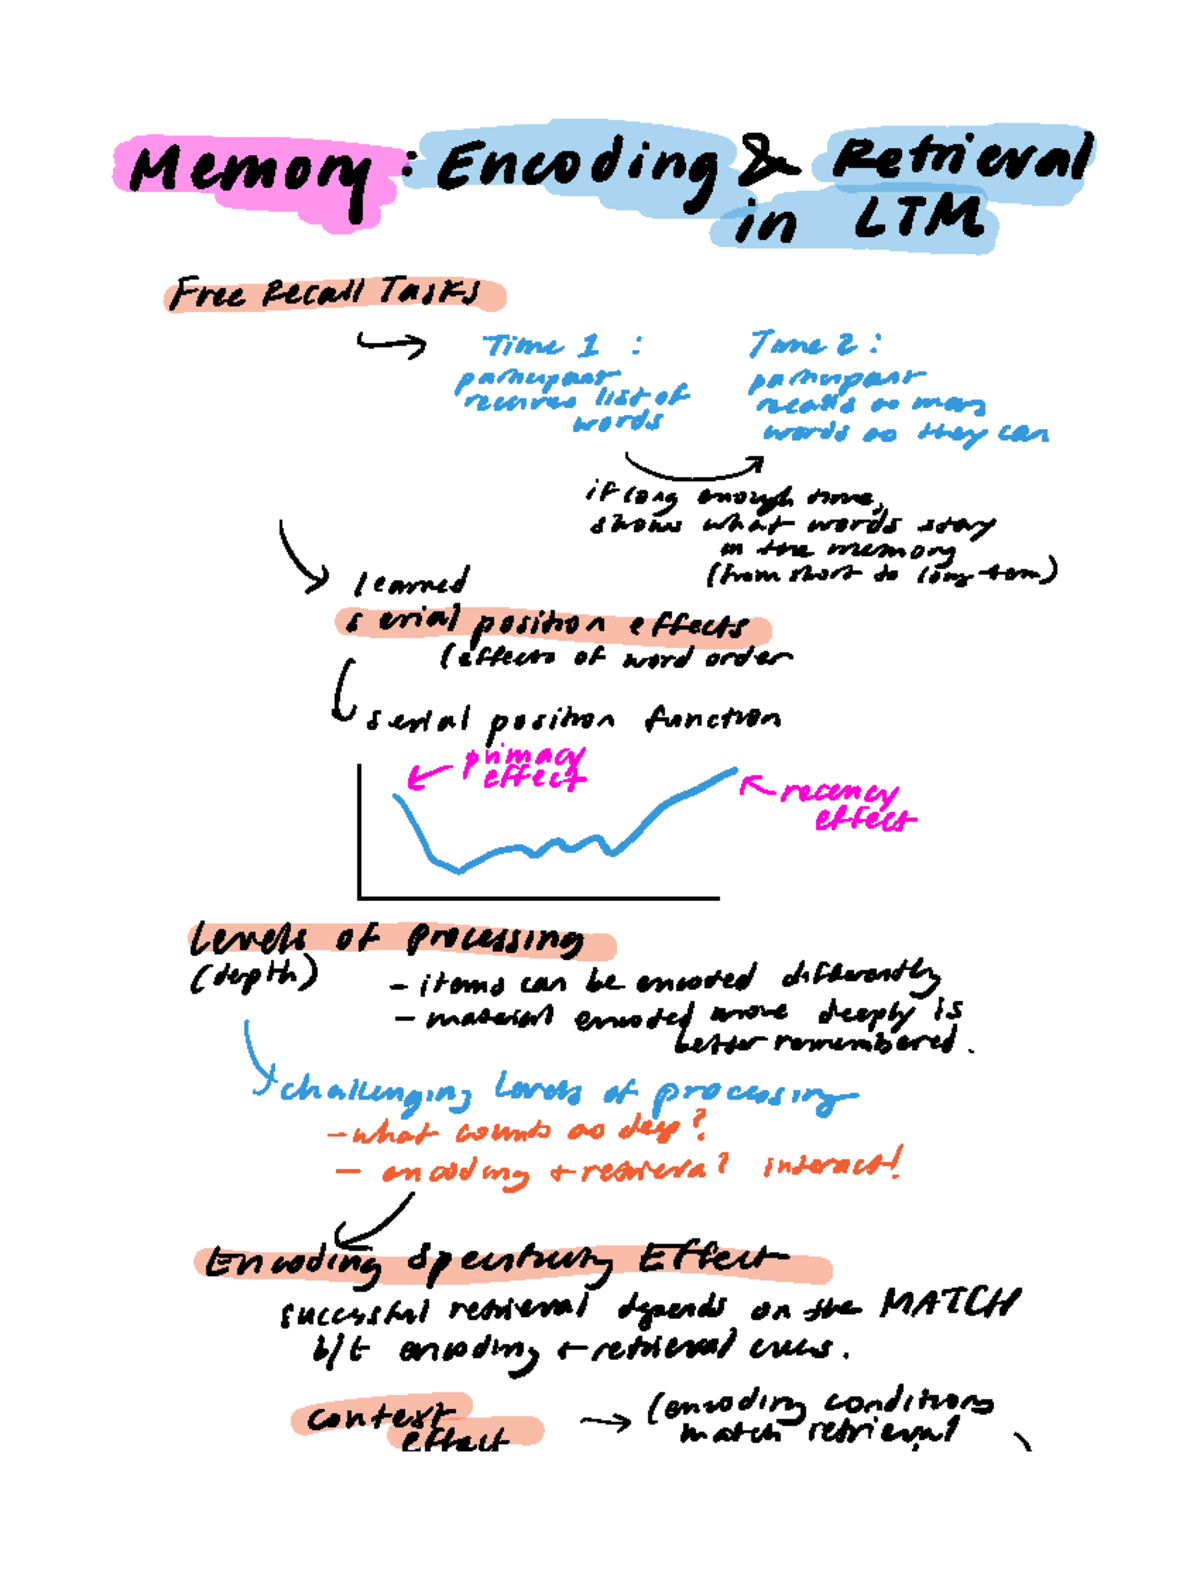 Memory: Encoding & Retrieval
in LTM
Free Recall Tasks
Time 1 :
participant
receives list of
words
Time 2 :
participant
recalls as many
words as they can
if long enough time,
shows what words stay
in the memory
(from short to long-term)
learned
serial position effects
(effects of word order
serial position function
primacy
effect
recency
effect
Levels of processing
(depth)
- items can be encoded differently
- material encoded more deeply is
better remembered.
challenging levels of processing
- what counts as deep?
- encoding + retrieval interact!
Encoding Specificity Effect
successful retrieval depends on the MATCH
b/t encoding + retrieval cues.
context
effect
(encoding conditions
match retrieval